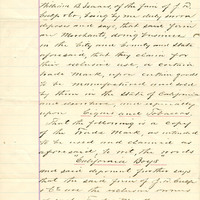 William B Seward of the firm of J. D.
& Co, being by me duly sworn
deposes and says, that said firm
are Merchants, doing business
in the City and County and State
aforesaid, that they claim for
their exclusive use, a certain
Trade Mark, upon certain goods
to be manufactured and sold
by them in the State of California
and elsewhere, and especially
upon Cigars and Tobacco.
That the following is a Copy
of the Trade Mark, as intended
to be used and claimed as
aforesaid, to wit, the words
California Boys
and said deponent further says
that the said firm of
& Co are the exclusive owners